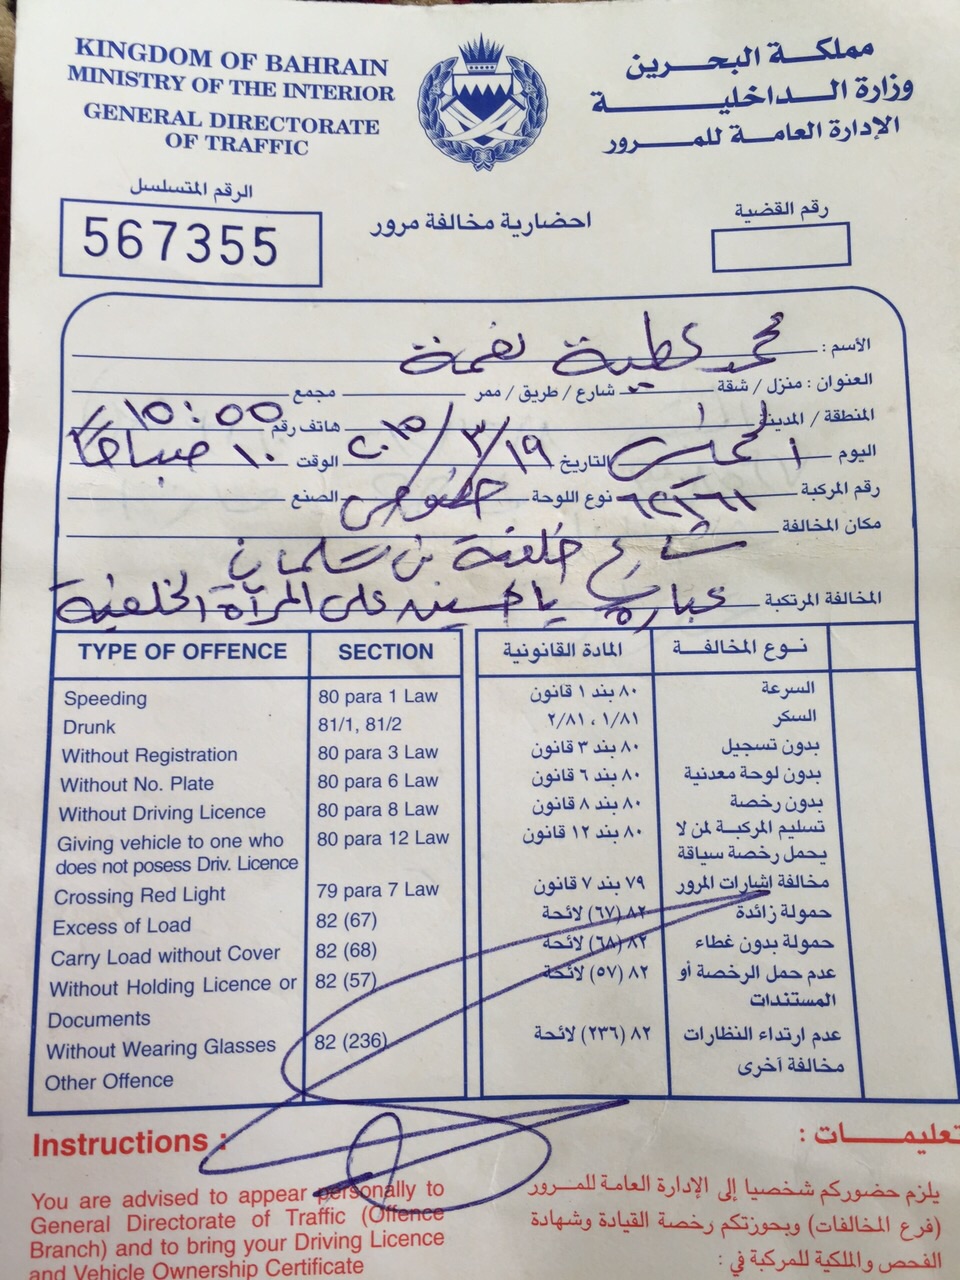 KINGDOM OF BAHRAIN
MINISTRY OF THE INTERIOR
GENERAL DIRECTORATE
OF TRAFFIC
مملكة البحرين
وزارة الداخلية
الإدارة العامة للمرور
الرقم المتسلسل
567355
احضارية مخالفة مرور
رقم القضية
الأسم : محمد عطية نعمة
العنوان : منزل / شقة شارع / طريق / ممر مجمع
المنطقة / المدينة هاتف رقم ١٥:٥٥
اليوم الخميس التاريخ ١٩/٣/٢٠١٥ الوقت ١٠ صباحاً
رقم المركبة نوع اللوحة خصوصي الصنع
مكان المخالفة
شارع خليفة بن سلمان
المخالفة المرتكبة عبارة يا حسين على المرآة الخلفية
TYPE OF OFFENCE SECTION المادة القانونية نوع المخالفة
Speeding 80 para 1 Law ٨٠ بند ١ قانون السرعة
Drunk 81/1, 81/2 ١/٨١ ، ٢/٨١ السكر
Without Registration 80 para 3 Law ٨٠ بند ٣ قانون بدون تسجيل
Without No. Plate 80 para 6 Law ٨٠ بند ٦ قانون بدون لوحة معدنية
Without Driving Licence 80 para 8 Law ٨٠ بند ٨ قانون بدون رخصة
Giving vehicle to one who 80 para 12 Law ٨٠ بند ١٢ قانون تسليم المركبة لمن لا
does not posess Driv. Licence يحمل رخصة سياقة
Crossing Red Light 79 para 7 Law ٧٩ بند ٧ قانون مخالفة إشارات المرور
Excess of Load 82 (67) ٨٢ (٦٧) لائحة حمولة زائدة
Carry Load without Cover 82 (68) ٨٢ (٦٨) لائحة حمولة بدون غطاء
Without Holding Licence or 82 (57) ٨٢ (٥٧) لائحة عدم حمل الرخصة أو
Documents المستندات
Without Wearing Glasses 82 (236) ٨٢ (٢٣٦) لائحة عدم ارتداء النظارات
Other Offence مخالفة أخرى
Instructions :
You are advised to appear personally to
General Directorate of Traffic (Offence
Branch) and to bring your Driving Licence
and Vehicle Ownership Certificate
تعليمات :
يلزم حضوركم شخصيا إلى الإدارة العامة للمرور
(فرع المخالفات) وبحوزتكم رخصة القيادة وشهادة
الفحص والملكية للمركبة في :